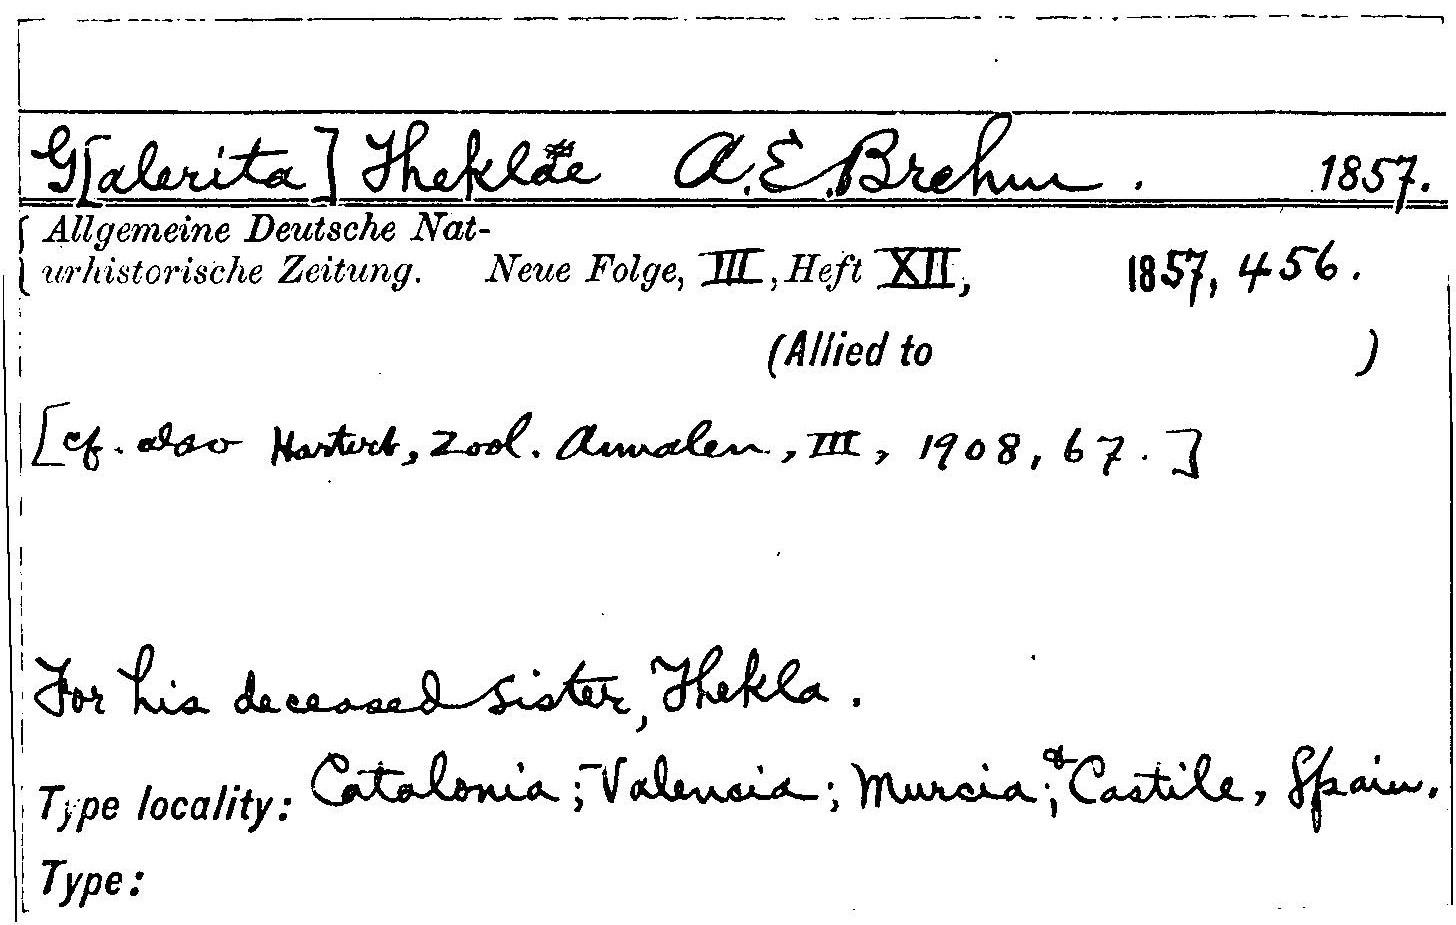 G[alerita] Theklae A. E. Brehm. 1857.
Allgemeine Deutsche Nat-
urhistorische Zeitung. Neue Folge, III, Heft XII, 1857, 456.
(Allied to )
[cf. also Hartert, Zool. Annalen, III, 1908, 67.]
For his deceased sister, Thekla.
Type locality: Catalonia; Valencia; Murcia; & Castile, Spain.
Type: